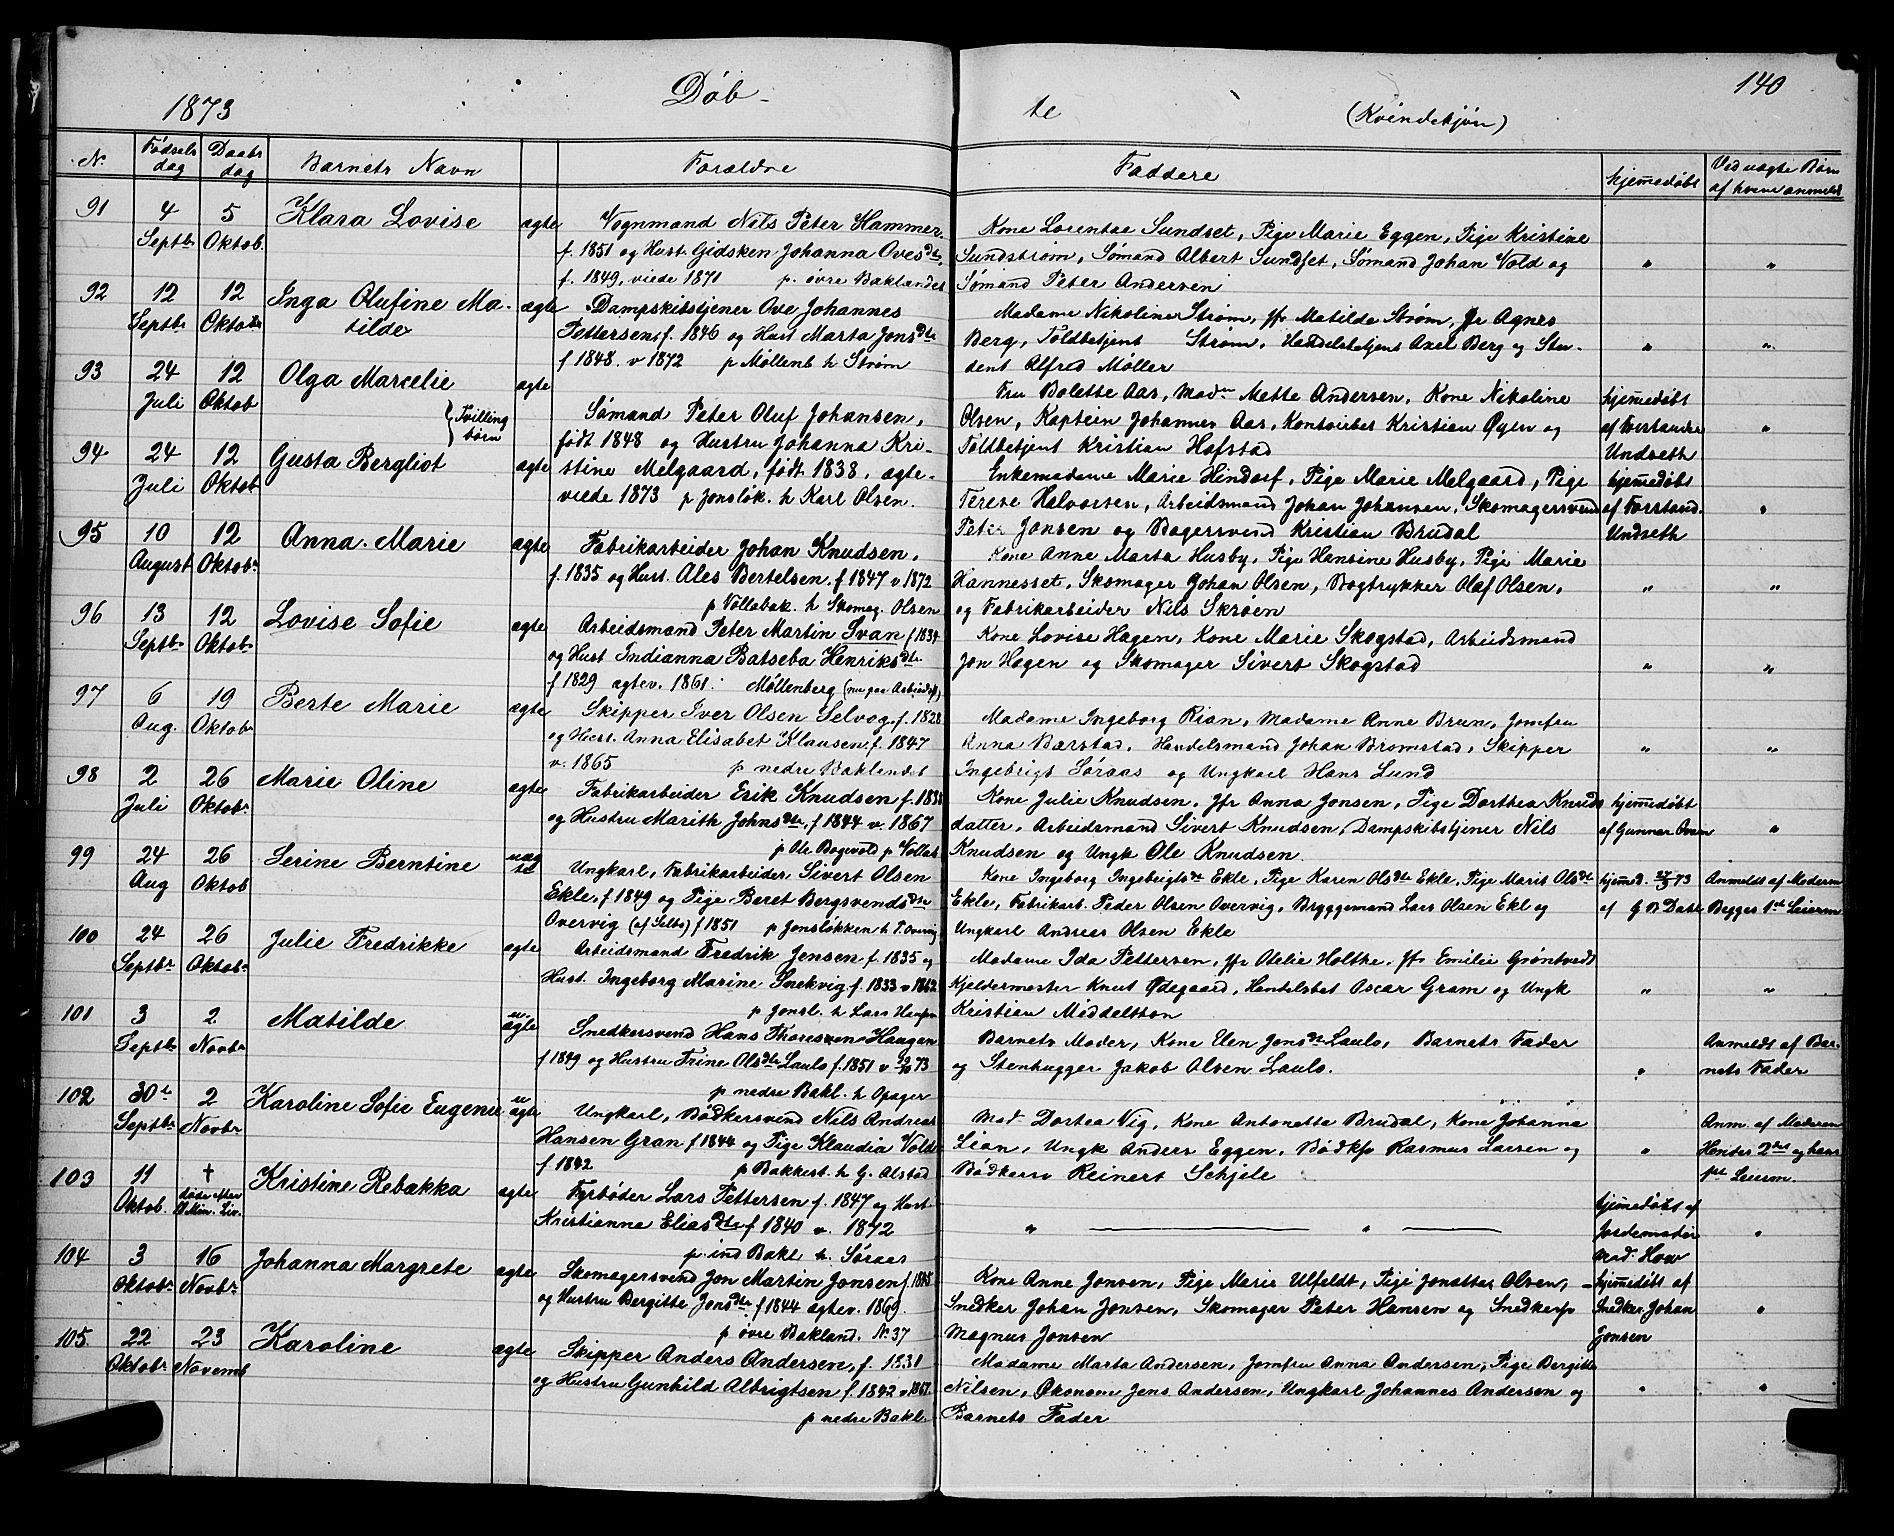 140
1873 Døb- te (Kvindekjøn)
N. Fødsels dag Daabs dag Barnets Navn Forældre Faddere hjemedøbt Ved uægte Børn af hvem anmeldt
91 4 Septbr 5 Oktob. Klara Lovise ægte
Vognmand Nils Peter Hammer
f. 1851 og Hust. Gidsken Johanna Ovesdtr
f. 1849, viede 1871 p. øvre Baklandet
Kone Lorentze Sundset, Pige Marie Eggen, Pige Kristine
Sundstrøm, Sømand Albert Sundset, Sømand Johan Vold og
Sømand Peter Andersen
" "
92 12 Septbr 12 Oktobr Inga Olufine Ma-
tilde ægte
Dampskibstjener Ove Johannes
Pettersen f. 1846 og Hust Marta Jonsdtr
f 1848. v 1872 p Møllenb h Strøm
Madame Nikoline Strøm, Jfr Matilde Strøm, Jfr Agnes
Berg, Toldbetjent Strøm, Handelsbetjent Axel Berg og Stu-
dent Alfred Møller
" "
93 24 Juli 12 Oktob Olga Marcelie ægte
Tvilling
børn
Sømand Peter Oluf Johansen,
født 1848 og Hustru Johanna Kri-
Fru Bolette Aas, Madm Mette Andersen, Kone Nikoline
Olsen, Kaptein Johannes Aas, Kontoirbet Kristian Øyen og
Toldbetjent Kristian Hofstad
hjemedøbt
af Forstander
Undseth
"
94 24 Juli 12 Oktob Gusta Bergliot ægte
stine Melgaard, født 1838, ægte-
viede 1873 p Jonsløk. h Karl Olsen.
Enkemadame Marie Hindorf, Pige Marie Melgaard, Pige
Terese Halvorsen, Arbeidsmand Johan Johansen, Skomagersvend
Peter Jonsen og Bagersvend Kristian Brudal
hjemedøbt
af Forstand.
Undseth
"
95 10 August 12 Oktobr Anna Marie ægte
Fabrikarbeider Johan Knudsen,
f. 1835 og Hust. Ales Bertelsen. f 1847 v 1872
p Vollabak. h Skomag. Olsen
Kone Anne Marta Husby, Pige Hansine Husby, Pige Marie
Hannesset, Skomager Johan Olsen, Bogtrykker Olaf Olsen,
og Fabrikarbeider Nils Skrøen
" "
96 13 Septbr 12 Oktobr Lovise Sofie ægte
Arbeidsmand Peter Martin Svan f 1834
og Hust Indianna Batseba Henriksdtr
f 1829 ægtev. 1861. Møllenberg (nu paa Arbeidsh)
Kone Lovise Hagen, Kone Marie Skogstad, Arbeidsmand
Jon Hagen og Skomager Sivert Skogstad
" "
97 6 Aug. 19 Oktobr Berte Marie ægte
Skipper Iver Olsen Selvog f. 1828
og Hust. Anna Elisabet Klausen f. 1847
v. 1865 p nedre Baklandet
Madame Ingeborg Rian, Madame Anne Brun, Jomfru
Anna Bærstad, Handelsmand Johan Bromstad, Skipper
Ingebrigt Søraas og Ungkarl Hans Lund
" "
98 2 Juli 26 Oktobr. Marie Oline ægte
Fabrikarbeider Erik Knudsen f. 1838
og Hustru Marith Johnsdtr, f 1844 v. 1867
p Ole Bogevold p Vollab
Kone Julie Knudsen, Jfr Anna Jonsen, Pige Dorthea Knuds
datter, Arbeidsmand Sivert Knudsen, Dampskibstjener Nils
Knudsen og Ungk Ole Knudsen.
hjemedøbt
af Gunnar Oven
"
99 24 Aug 26 Oktob Serine Berntine uæg
te
Ungkarl, Fabrikarbeider Sivert Olsen
Ekle, f 1849 og Pige Beret Bergsvendsdtr
Overvig (af Selbo) f 1851 p Jonsløkken h P. Overvig
Kone Ingeborg Ingebrigtsdtr Ekle, Pige Karen Olsdtr Ekle, Pige Marit Olsdtr
Ekle, Fabrikarb. Peder Olsen Overvig, Bryggemand Lars Olsen Ekl og
Ungkarl Andreas Olsen Ekle
hjemd. 73
af G B Dahl
Anmeldt af Moderen
Begges 1st Leierm
100 24 Septbr 26 Oktobr Julie Fredrikke ægte
Arbeidsmand Fredrik Jensen f. 1835 og
Hust. Ingeborg Marine Snekvig f. 1833 v 1862
p Jonsl. h Lars Hansen
Madame Ida Pettersen, Jfr Atelie Holtke, Jfr Emilie Grøntvedt
Kjeldermester Knut Ødegaard, Handelsbet Oscar Gram og Ungk
Kristian Middelthon
" "
101 3 Septbr 2 Novbr Matilde u
ægte
Snedkersvend Hans Thoresen Haugan
f 1849 og Hustru Trine Olsdtr Laulo f. 1851 v 73
p nedre Bakl. h Opager
Barnets Moder, Kone Elen Jonsdtr Laulo, Barnets Fader
og Stenhugger Jakob Olsen Laulo.
"
Anmeldt af Bar-
nets Fader
102 30te Septbr 2 Novbr Karoline Sofie Eugenie u
ægte
Ungkarl, Bødkersvend Nils Andreas
Hansen Gran f 1844 og Pige Klaudia Vold
f 1842 p Bakkest. h G. Alstad
Mad Dortea Vig, Kone Antonette Brudal, Kone Johanna
Lian, Ungk Anders Eggen, Bødksv Rasmus Larsen og
Bødkersv Reinert Schjele
"
Anm. af Moderen
Hendes 2det og hans
1st Leierm.
103 11 Oktob. †
døde efter
Min. Liv. Kristine Rebækka ægte
Fyrbøder Lars Pettersen f. 1847 og Hust
Kristianna Eliasdtr f 1840 v. 1872
p. ind Bakl h. Søraas
" "
hjemedøbt af
Jordemoder
Mad. How
"
104 3 Oktobr 16 Novbr Johanna Margrete ægte
Skomagersvend Jon Martin Jonsen f. 1845
og Hustru Bergitte Jonsdtr f 1844 ægtev. 1869.
p øvre Bakland. No 37
Kone Anne Jonsen, Pige Marie Ulfeldt, Pige Jonetta Olsen,
Snedker Johan Jonsen, Skomager Peter Hansen og Snedkersv
Magnus Jonsen
hjemedøbt af
Snedker Johan
Jonsen
"
105. 22 Oktobr 23 Novemb Karoline ægte
Skipper Anders Andersen, f. 1831
og Hustru Gunhild Albrigtsen f. 1842 v 1867.
p nedre Bakl.
Madame Marta Andersen, Jomfru Anna Andersen, Pige Bergitte
Nilsen, Økonom Jens Andersen, Ungkarl Johannes Andersen og
Barnets Fader
" "